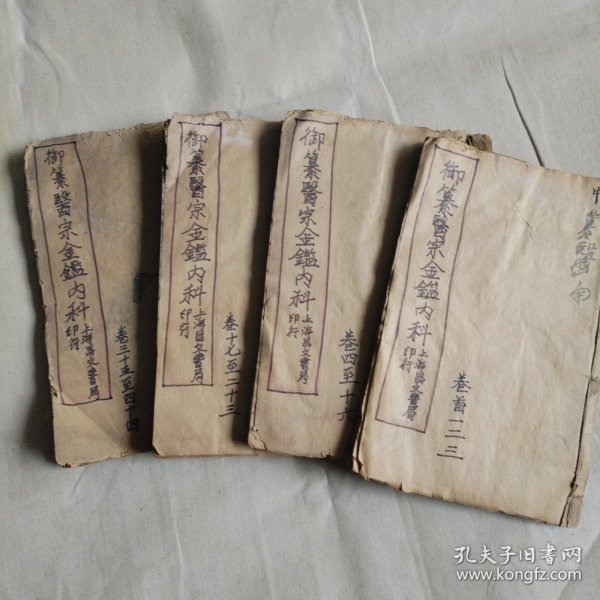 御纂醫宗金鑑内科
上海昌文書局
印行
卷三十五至四十四
御纂醫宗金鑑内科
上海昌文書局
印行
卷十七至二十三
御纂醫宗金鑑内科
上海昌文書局
印行
卷四至十六
御纂醫宗金鑑内科
上海昌文書局
印行
卷首一二三
纂醫
孔夫子旧书网
www.kongfz.com